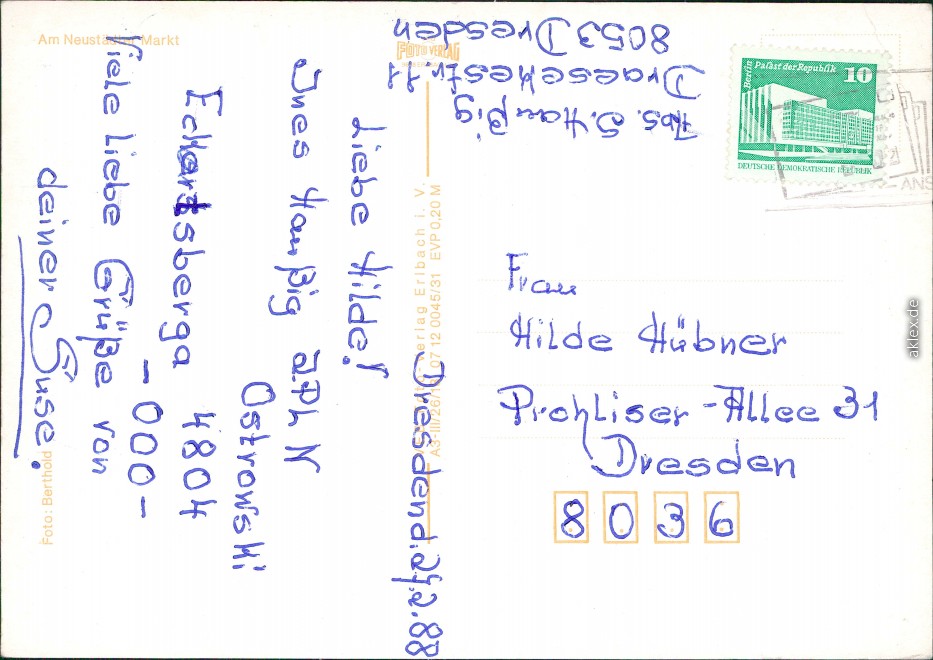 Am Neustädter Markt
FOTO VERLAG
Abs. S. Haußig
Draesekestr. 11
8053 Dresden
Berlin Palast der Republik 10
DEUTSCHE DEMOKRATISCHE REPUBLIK
ANS
Dresden d. 24.2.88
Liebe Hilde!
Ines Haußig
Ostrowski
Eckartsberga 4804
-000-
Viele liebe Grüße von
deiner Suse!
Frau
Hilde Hübner
Prohliser-Allee 31
Dresden
8036
Verlag Erlbach i. V.
A3-III/26/1 07 12 0045/31 EVP 0,20 M
Foto: Berthold
aklex.de